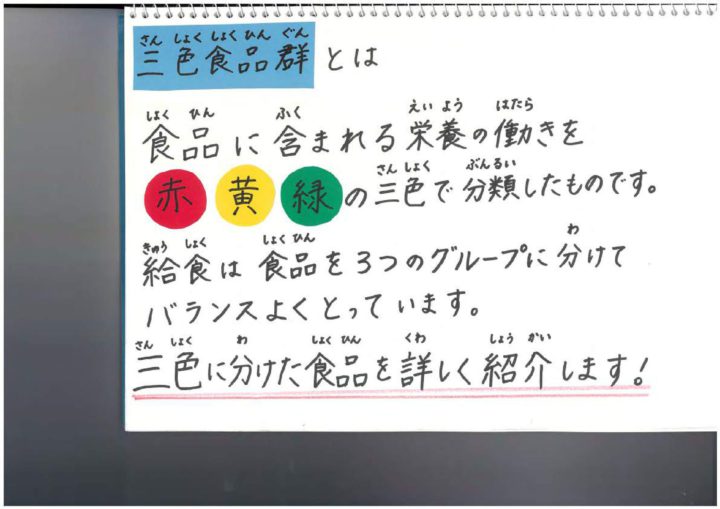 さん しょく しょく ひん ぐん
三色食品群とは
しょく ひん ふく えい よう はたら
食品に含まれる栄養の働きを
さん しょく ぶんるい
赤 黄 緑の三色で分類したものです。
きゅう しょく しょく ひん わ
給食は食品を3つのグループに分けて
バランスよくとっています。
さん しょく わ しょく ひん くわ しょう かい
三色に分けた食品を詳しく紹介します!